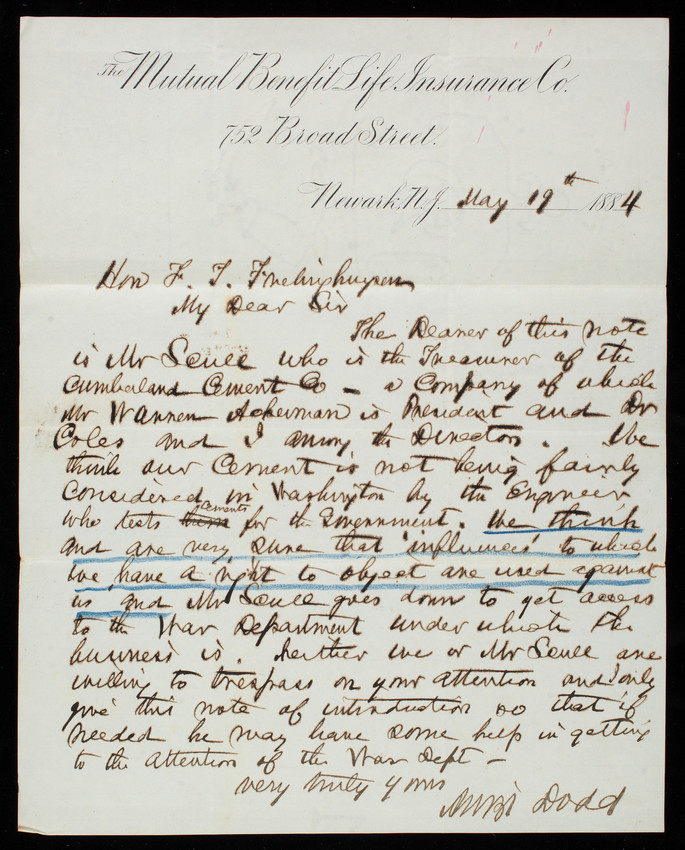 The Mutual Benefit Life Insurance Co.
752 Broad Street.
Newark, N.J. May 19th 1884
Hon F. T. Frelinghuysen
My Dear Sir
The Bearer of this note
is Mr Scull who is the Treasurer of the
Cumberland Cement Co – a Company of which
Mr Warren Ackerman is President and Dr
Coles and I among the Directors. We
think our Cement is not being fairly
Considered in Washington by the Engineer
who tests them cements for the Government. We think
and are very sure that 'influences' to which
we have a right to object are used against
us and Mr Scull goes down to get access
to the War Department under which the
business is. Neither we or Mr Scull are
willing to trespass on your attention and I only
give this note of introduction so that if
needed he may have some help in getting
to the attention of the War Dept –
very truly yours
Dodd